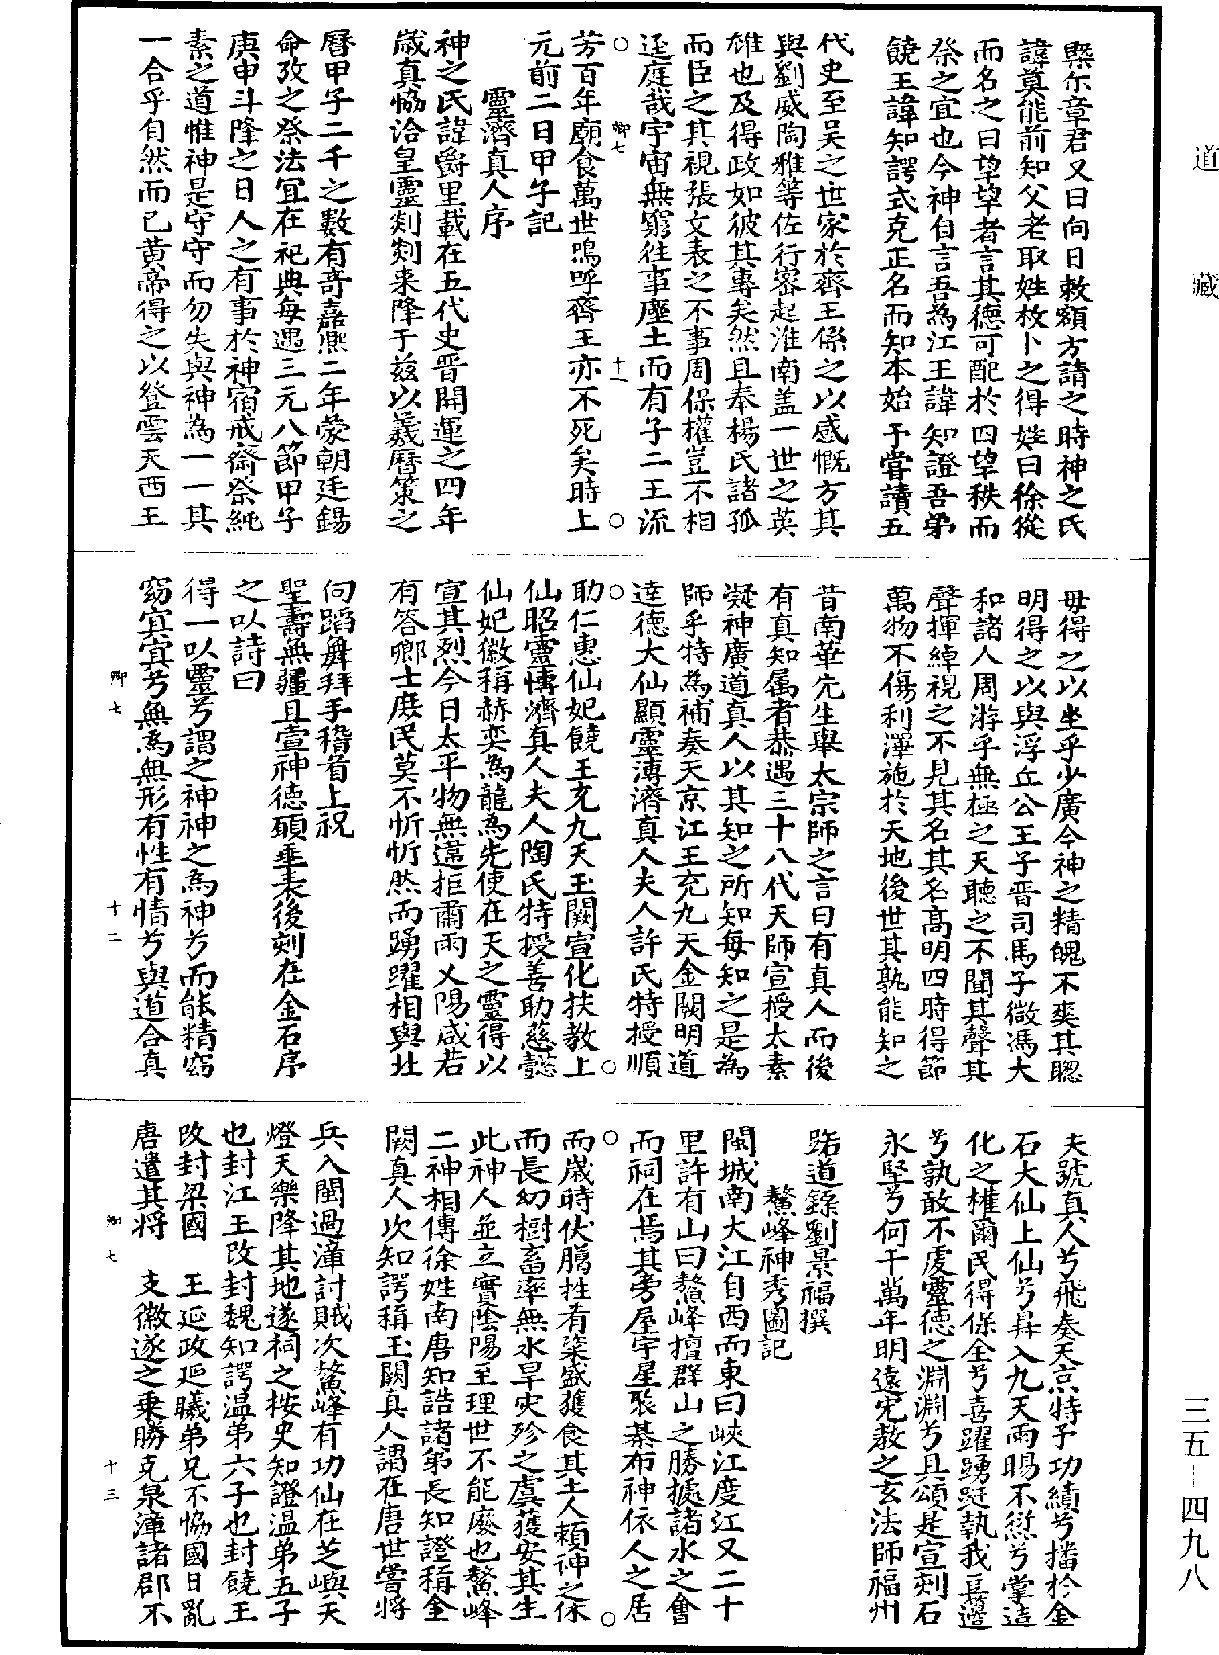 道藏
槩尒章君又曰向日敕額方請之時神之氏
諱莫能前知父老取姓枚卜之得姓曰徐從
而名之曰望望者言其德可配於四望秩而
祭之宜也今神自言吾為江王諱知證吾弟
饒王諱知諤式克正名而知本始予嘗讀五
代史至吳之世家於齊王係之以感慨方其
與劉威陶雅等佐行密起淮南盖一世之英
雄也及得政如彼其專矣然且奉楊氏諸孤
而臣之其視張文表之不事周保權豈不相
逕庭哉宇宙無窮往事塵土而有子二王流
芳百年廟食萬世嗚呼齊王亦不死矣時上
元前二日甲午記
靈濟真人序
神之氏諱爵里載在五代史晋開運之四年
歲真恊洽皇靈剡剡来降于兹以羲曆策之
曆甲子二千之數有竒嘉熈二年蒙朝廷錫
命攷之祭法冝在祀典每遇三元八節甲子
庚申斗降之日人之有事於神宿戒齋祭純
素之道惟神是守守而勿失與神為一一其
一合乎自然而已黄帝得之以登雲天西王
母得之以坐乎少廣今神之精魄不爽其聰
明得之以與浮丘公王子晋司馬子微馮大
和諸人周游乎無極之天聽之不聞其聲其
聲揮綽視之不見其名其名髙明四時得節
萬物不傷利澤施於天地後世其孰能知之
昔南華先生舉太宗師之言曰有真人而後
有真知属者恭遇三十八代天師宣授太素
凝神廣道真人以其知之所知每知之是為
師乎特為補奏天京江王充九天金闕明道
達德大仙顯靈溥濟真人夫人許氏特授順
助仁惠仙妃饒王充九天玉闕宣化扶教上
仙昭靈愽濟真人夫人陶氏特授善助慈懿
仙妃徽稱赫奕為龍為光使在天之靈得以
宣其烈今日太平物無違拒雨雨乂陽咸若
有荅鄉士庶民莫不忻忻然而踴躍相與北
向蹈舞拜手稽首上祝
聖壽無疆且宣神德頋垂表後刻在金石序
之以詩曰
得一以靈兮謂之神神之為神兮而能精窈
窈冥冥兮無為無形有性有情兮與道合真
夫號真人兮飛奏天京特予功績兮播於金
石大仙上仙兮昇入九天雨暘不愆兮掌造
化之權爾民得保全兮喜躍踴跹執我豆籩
兮孰敢不虔靈德之淵淵兮具頌是宣刻石
永堅兮何千萬年明遠宪教之玄法師福州
路道錄劉景福撰
鰲峰神秀圖記
閩城南大江自西而東曰峽江度江又二十
里許有山曰鰲峰擅群山之勝據諸水之會
而祠在焉其旁屋宇星聚棊布神依人之居
而歲時伏臘牲肴粢盛獲食其土人頼神之休
而長幼樹畜率無水旱灾殄之虞獲安其生
此神人並立實陰陽至理世不能廢也鰲峰
二神相傳徐姓南唐知誥諸弟長知證稱金
闕真人次知諤稱玉闕真人謂在唐世嘗將
兵入閩過漳討賊次鰲峰有功仙在芝嶼天
燈天樂降其地遂祠之桉史知證温弟五子
也封江王改封魏知諤温弟六子也封饒王
改封梁國　王延政延曦弟兄不恊國日亂
唐遣其将　支徽遂之乗勝克泉漳諸郡不
卿七　十一
卿七　十二
卿七　十三
三五—四九八